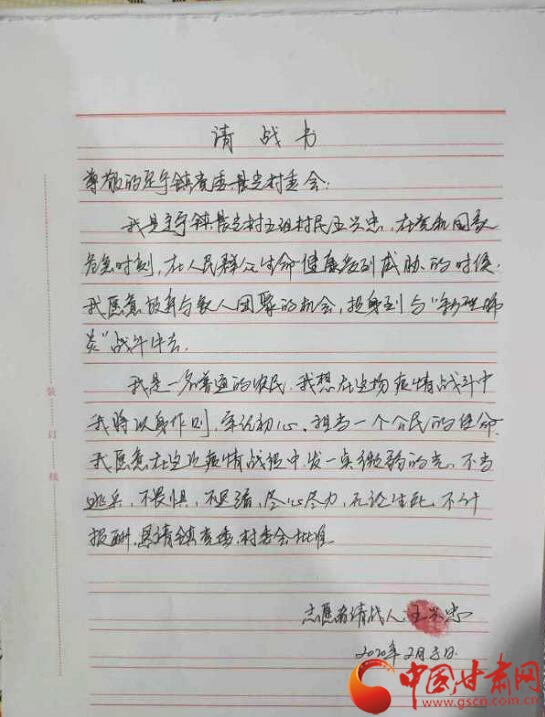 请战书
尊敬的镇党委村委会:
我是镇村五组村民王兴忠,在党和国家
危急时刻,在人民群众生命健康受到威胁的时候
我愿意放弃与家人团聚的机会,投身到与“新型肺
炎”战斗中去。
我是一名普通的农民,我想在这场疫情战斗中
我将以身作则,牢记初心、担当一个公民的使命
我愿意在这次疫情战役中,发一点微弱的光,不当
逃兵,不畏惧,不退缩,尽心尽力,无论生死,不计
报酬,恳请镇党委,村委会批准。
志愿者请战人:王兴忠
2020年2月3日
装订线
中国甘肃网
www.gscn.com.cn